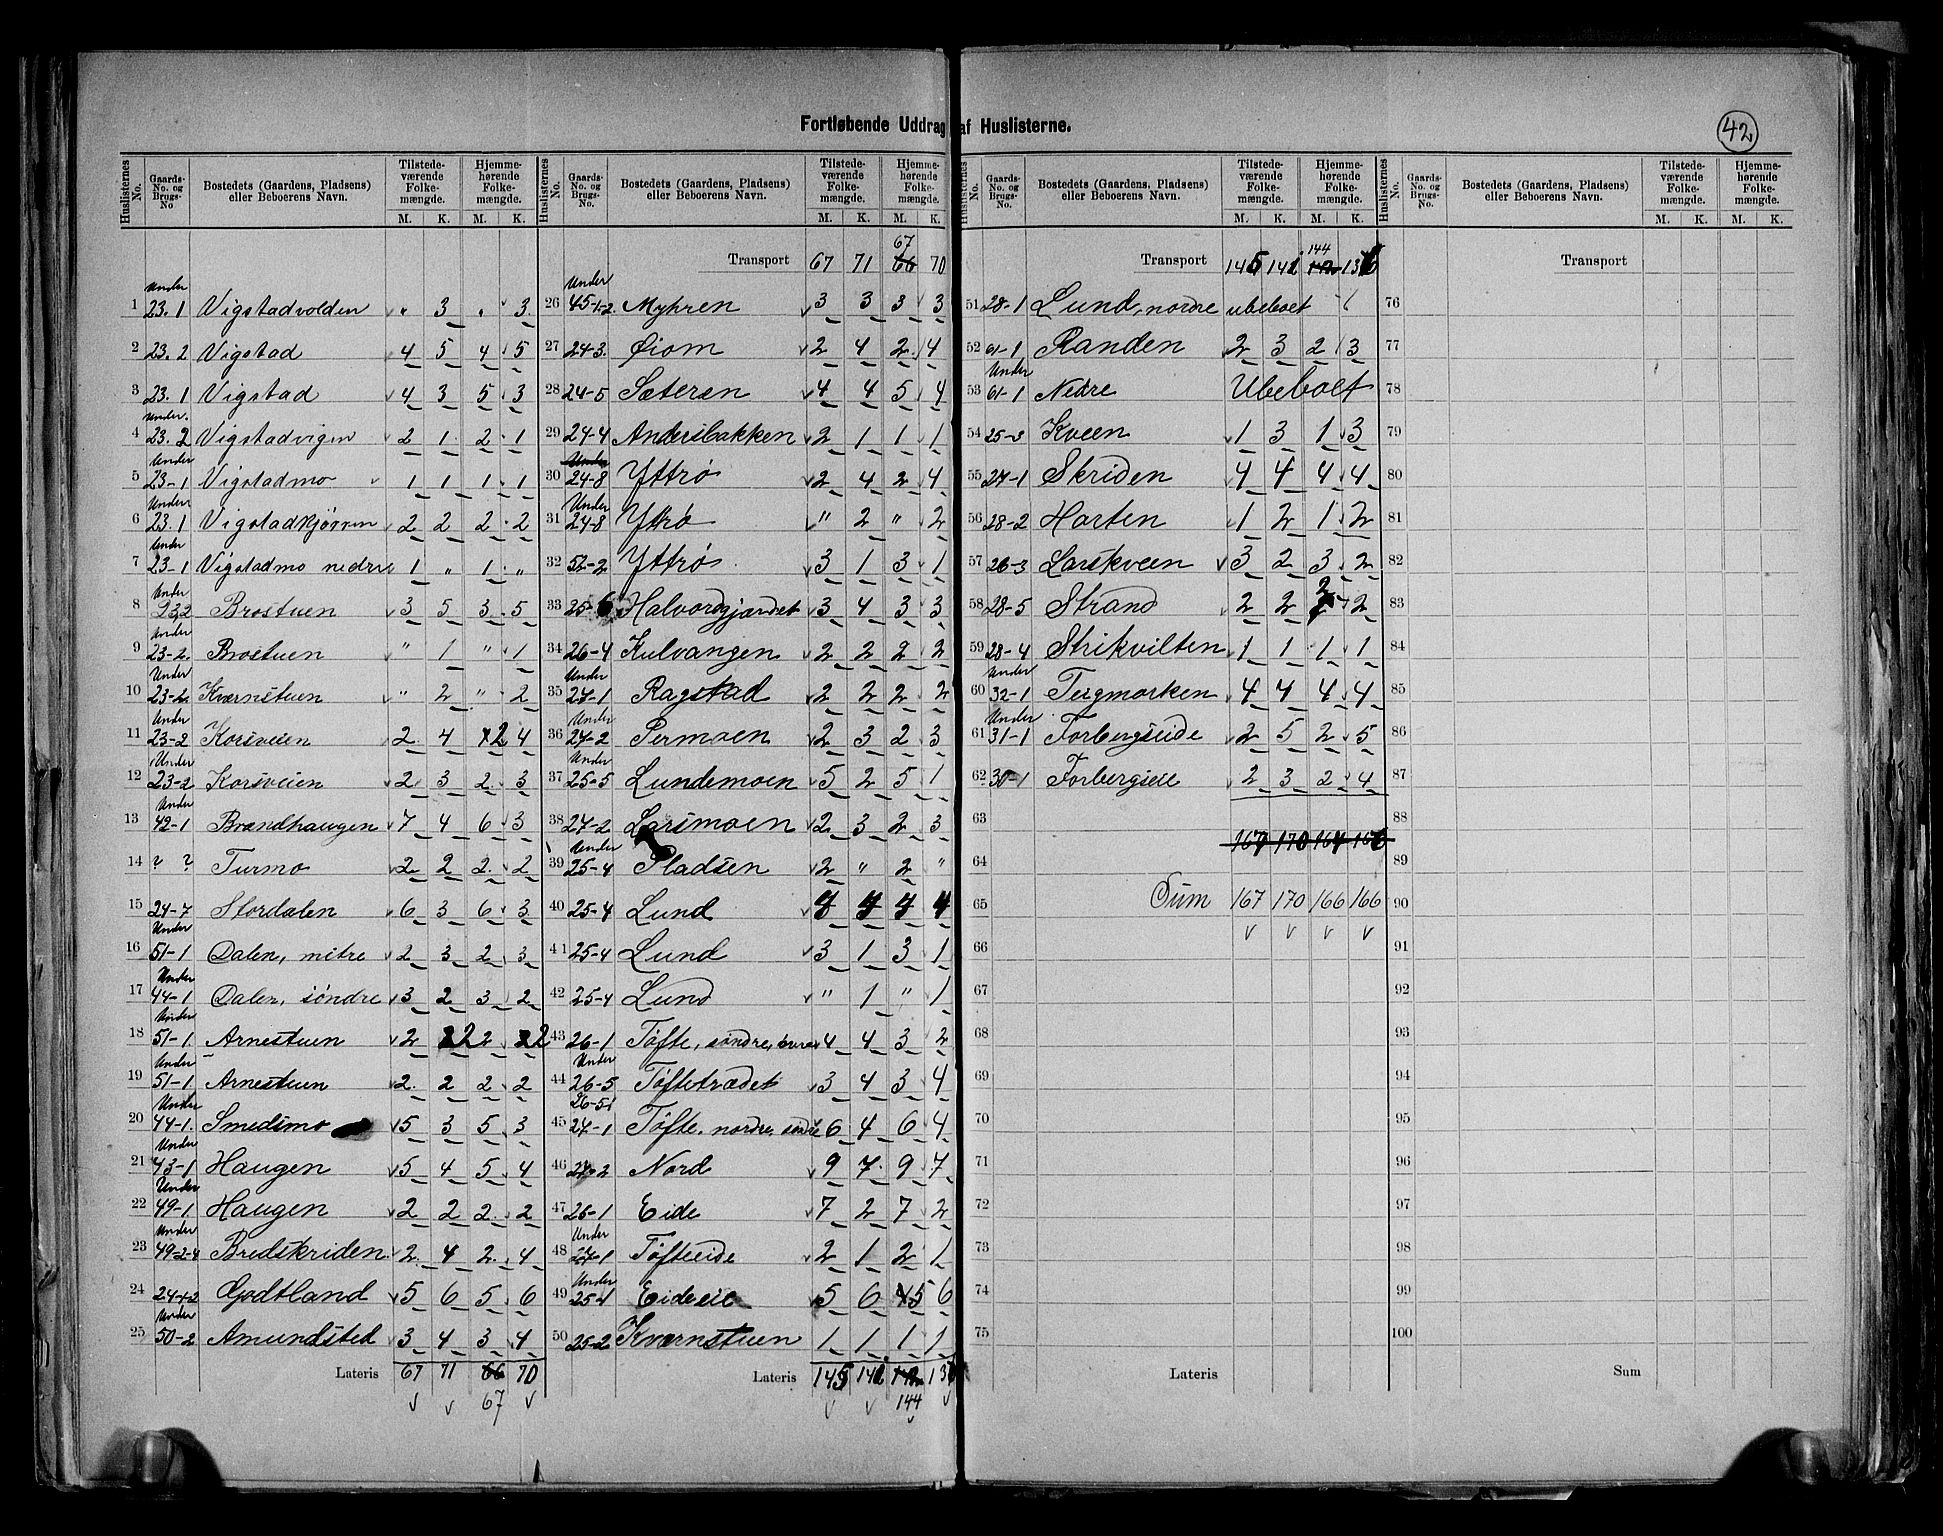 42
Fortløbende Uddrag af Huslisterne.
Huslisternes No. Gaards-No. og Brugs-No Bostedets (Gaardens, Pladsens) eller Beboerens Navn. Tilstedeværende Folkemængde. M. K. Hjemmehørende Folkemængde. M. K.
1 Under 23.1 Vigstadvolden " 3 " 3
2 23.2 Vigstad 4 5 4 5
3 23.1 Vigstad 4 3 5 3
4 Under 23.2 Vigstadvigen 2 1 2 1
5 Under 23-1 Vigstadmo 1 1 1 1
6 Under 23.1 Vigstadkjørren 2 2 2 2
7 Under 23-1 Vigstadmo nedre 1 " 1 "
8 Under 23.2 Brostuen 3 5 3 5
9 Under 23-2. Brostuen " 1 " 1
10 Under 23-2. Kværnstuen " 2 " 2
11 Under 23-2 Korsveien 2 4 2 4
12 Under 23-2 Korsveien 2 3 2 3
13 Under 42-1 Brændhaugen 7 4 6 3
14 ? ? Turmo 2 2 2 2
15 24-7 Stordalen 6 3 6 3
16 Under 51-1 Dalen, mitre 2 3 2 3
17 Under 44-1 Dalen, søndre 3 2 3 2
18 Under 51-1 Arnestuen 2 2 2 2
19 Under 51-1 Arnestuen 2 2 2 2
20 Under 44-1. Smedsmo 5 3 5 3
21 Under 43-1 Haugen 5 4 5 4
22 Under 49-1 Haugen 2 2 2 2
23 Under 49-2-4 Bredskriden 2 4 2 4
24 Godtland 5 6 5 6
25 Under 50-2 Amundsted 3 4 3 4
Lateris 67 71 66 70
67
Huslisternes No. Gaards-No. og Brugs-No. Bostedets (Gaardens, Pladsens) eller Beboerens Navn. Tilstedeværende Folkemængde. M. K. Hjemmehørende Folkemængde. M. K.
67
Transport 67 71 66 70
26 Under 45-1-2. Myhren 3 3 3 3
27 24-3. Øiom 2 4 2 4
28 24-5 Sæteren 4 4 5 4
29 24-4 Andersbakken 2 1 1 1
30 Under 24-8 Yttrø 2 4 2 4
31 Under 24-8 Yttrø " 2 " 2
32 52-2 Yttrø 3 1 3 1
33 25-6 Halvordgjærdet 3 4 3 3
34 26-4 Kulvangen 2 2 2 2
35 Under 24-1 Ragstad 2 2 2 2
36 Under 24-2 Permoen 2 3 2 3
37 Under 25-5 Lundemoen 5 2 5 1
38 27-2 Larsmoen 2 3 2 3
39 Under 25-4 Pladsen 2 " 2 "
40 25-4 Lund
41 25-4 Lund 3 1 3 1
42 25-4 Lund " 1 " 1
43 26-1 Tøfte, søndre, 4 4 3 2
44 Under 26-5 Tøftetrædet 3 4 3 4
45 26-51 27-1 Tøfte, nordre, søndre 6 4 6 4
46 Nord 9 7 9 7
47 26-1 Eide 7 2 7 2
48 Under 27-1 Tøfteeide 2 1 2 1
49 Under Eideeie 5 6 5 6
50 25-2 Kværnstuen 1 1 1 1
Lateris 145 142
144
Huslisternes No. Gaards-No. og Brugs-No. Bostedets (Gaardens, Pladsens) eller Beboerens Navn. Tilstedeværende Folkemængde. M. K. Hjemmehørende Folkemængde. M. K.
144
Transport 145 142
51 28-1 Lund, nordre ubeboet
52 61-1 Randen 2 3 2 3
53 Under 61-1 Nedre Ubeboet
54 25-3 Kveen 1 3 1 3
55 27-1 Skriden 4 4 4 4
56 28-2 Harten 1 2 1 2
57 26-3 Larskveen 3 2 3 2
58 28-5 Strand 2 2 2 2
59 28-4 Strikvilten 1 1 1 1
60 Under 32-1 Tegmorken 4 4 4 4
61 Under 31-1 Forbergseide 2 5 2 5
62 30-1 Forbergseie 2 3 2 4
63
64
65 Sum 167 170 166 166
66
67
68
69
70
71
72
73
74
75
Lateris
Huslisternes No. Gaards-No. og Brugs-No. Bostedets (Gaardens, Pladsens) eller Beboerens Navn. Tilstedeværende Folkemængde. M. K. Hjemmehørende Folkemængde. M. K.
Transport
76
77
78
79
80
81
82
83
84
85
86
87
88
89
90
91
92
93
94
95
96
97
98
99
100
Sum